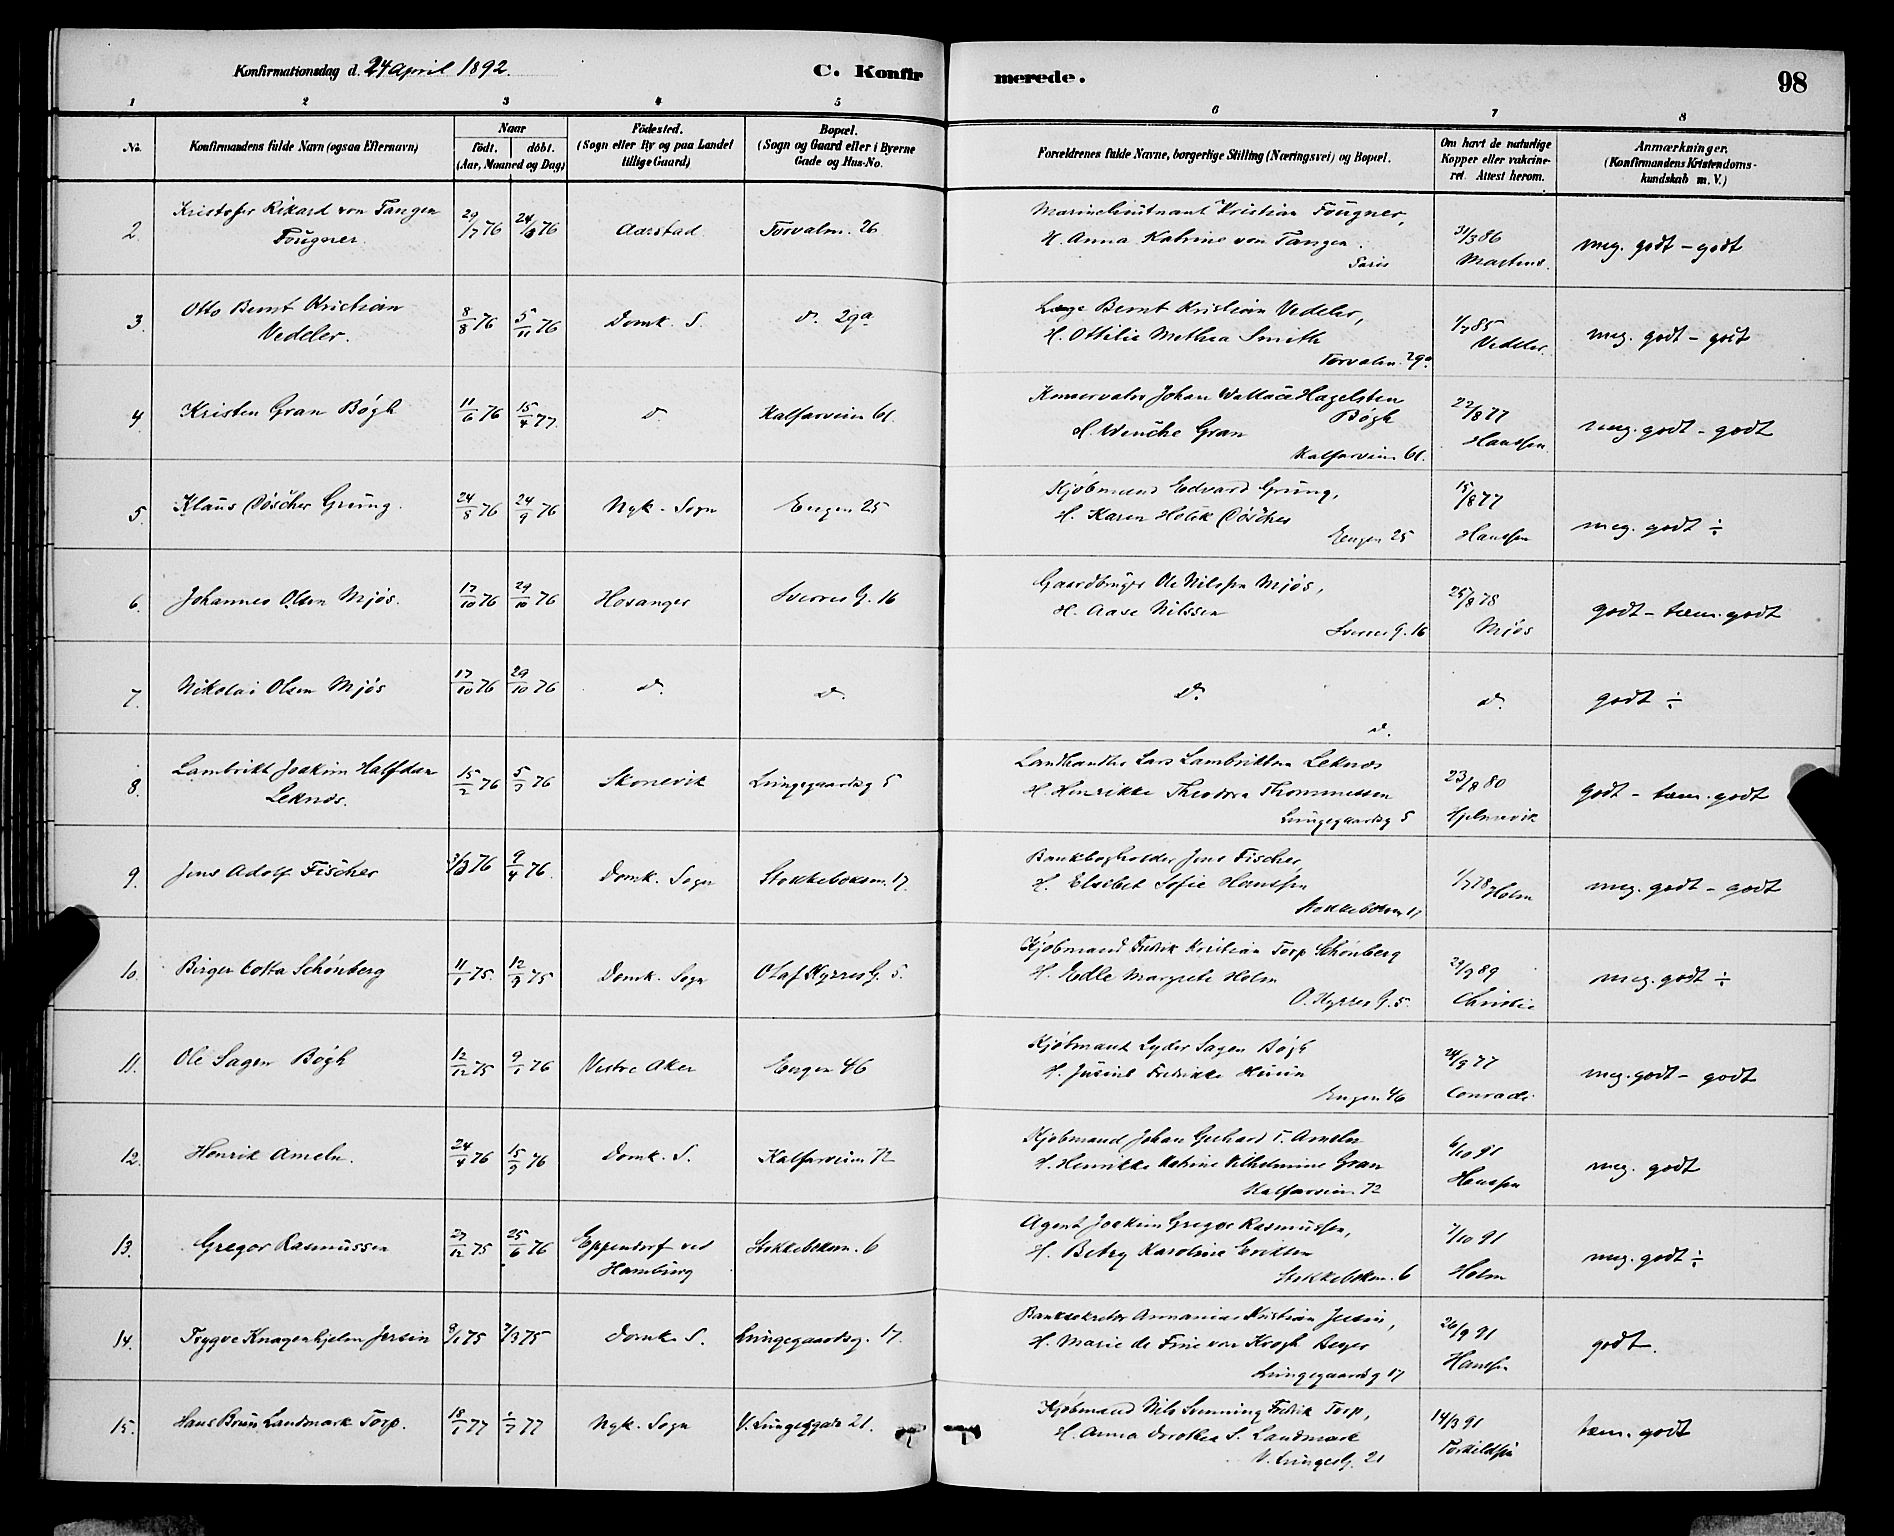 Konfirmationsdag d. 24 April 1892.
C. Konfirmerede.
98
1 2 3 4 5 6 7 8
No.
Konfirmandens fulde Navn (ogsaa Efternavn)
Naar
födt. döbt.
(Aar, Maaned og Dag)
Födested.
(Sogn eller By og paa Landet
tillige Gaard)
Bopæl.
(Sogn og Gaard eller i Byerne
Gade og Hus-No.
Forældrenes fulde Navne, borgerlige Stilling (Næringsvei) og Bopæl.
Om havt de naturlige
Kopper eller vakcine-
ret. Attest herom.
Anmærkninger.
(Konfirmandens Kristendoms-
kundskab m. V.)
2. Kristofer Rikard von Tangen
Fougner.
29/7 76 24/9 76 Aarstad Torvalm. 26
Marinelieutnant Kristian Fougner,
H. Anna Katrine von Tangen.
Paris
31/3 86
Martens.
meg. godt - godt
3. Otto Bernt Kristian
Vedeler.
8/8 76 5/11 76 Domk. S. d. 29a
Læge Bernt Kristian Vedeler,
H. Ottilie Methea Smith
Torvalm. 29a
1/7 85
Vedeler.
meg. godt - godt
4. Kristen Gran Bøgh
11/6 76 15/4 77. d. Kalfarveien 61.
Konservator Johan Wallace Hagelsten
Bøgh
H. Wenche Gran
Kalfarveien 61.
22/8 77
Hanssen
meg. godt - godt
5. Klaus Döscher Grung.
24/8 76 24/9 76 Nyk. Sogn Engen 25
Kjøbmand Edvard Grung,
H. Karen Döscher
Engen 25
15/8 77
Hanssen
meg. godt ÷
6. Johannes Olsen Mjøs.
17/10 76 29/10 76 Hosanger Sverres G. 16
Gaardbruger Ole Nilssen Mjøs,
H. Aase Nilssen
Sverres G. 16
25/8 78
Mjøs
godt - tem. godt
7. Nikolai Olsen Mjøs
17/10 76 29/10 76 d. d.
d.
d.
d.
godt ÷
8. Lambrikt Joakim Halfdan
Leknes.
15/2 76 5/3 76 Skonevik Lungegaardsg 5
Landhandler Lars Lambriktsen Leknes
H. Henrikke Theodora Thommessen
Lungegaardsg 5
23/8 80
Hjelmevik
godt - tem. godt
9. Jens Adolf Fischer
76 9/4 76. Domk. Sogn Stokkeboksm. 17
Bankbogholder Jens Fischer
H. Elsibet Sofie Hanssen
Stokkeboksm 17
1/7 78 Holm
meg. godt - godt
10. Birger Cotta Schönberg
11/1 75. 12/9 75 Domk. Sogn Olaf Kyrres G. 5.
Kjøbmand Fredrik Kristian Torp Schönberg
H. Edle Margrete Holm
O. Kyrres G. 5.
29/9 89
Christie
meg. godt ÷
11. Ole Sagen Bøgh
12/12 75 9/1 76 Vestre Aker Engen 46
Kjøbmand Lyder Sagen Bøgh
H. Fredrikke
Engen 46
24/9 77
Conradi
meg. godt - godt
12. Henrik Ameln.
24/4 76 15/9 76 Domk. S. Kalfarveien 72
Kjøbmand Johan Gerhard T. Ameln
H. Henrikke Katrine Vilhelmine Gran
Kalfarveien 72
6/10 91
Hanssen
meg. godt
13. Gregor Rasmussen
27/12 75 25/6 76 Eppendorf ved
Hamburg
Stokkeboksm. 6
Agent Joakim Gregor Rasmussen,
H. Betzy Karoline Eriksen
Stokkeboksm. 6
7/10 91
Holm
meg. godt ÷
14. Trygve Knagenhjelm Jersin
9/1 75 7/3 75 Domk. S. Lungegaardsg. 17.
Banksekretær Annanias Kristian Jersin,
H. Marie de Fine von Krogh Beyer
Lungegaardsg 17
26/9 91
Hanssen
godt.
15. Hans Bruun Landmark Torp.
18/1 77 77 Nyk. Sogn V. Lungegate 21.
Kjøbmand Nils Fredrik Torp,
H. Anna Dorothea S. Landmark
V. Lungeg. 21
14/3 91
Torkildsen
tem. godt